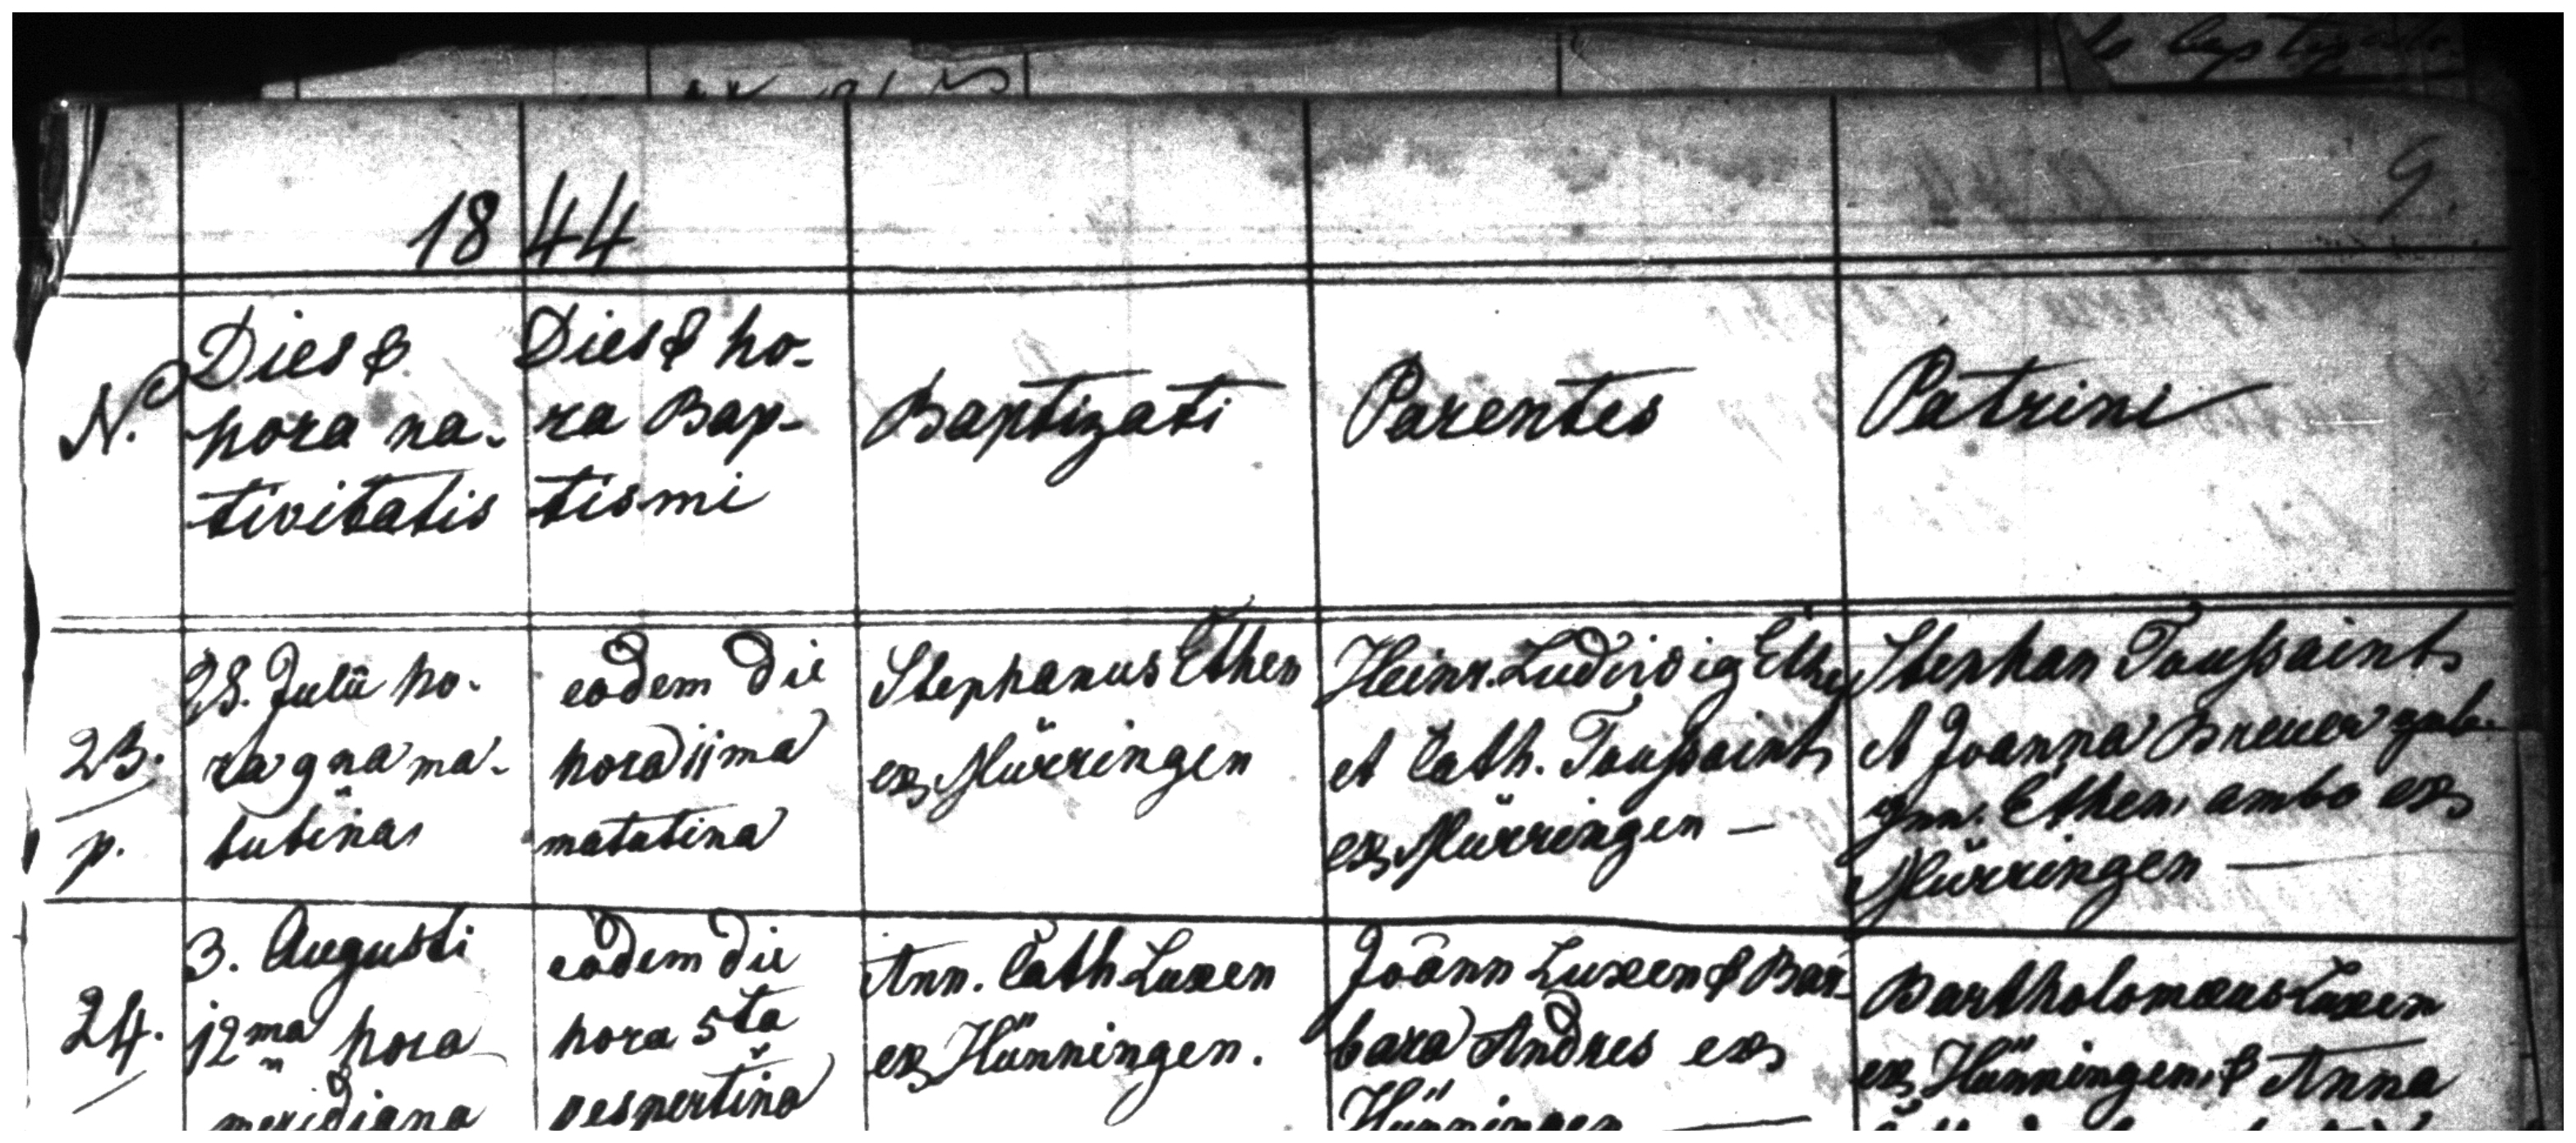 9.
1844
N.o
Dies &
hora na-
tivitatis
Dies & ho-
ra Bap-
tismi
Baptizati
Parentes
Patrini
23.
p.
28. Julii ho-
ra 9na ma-
tutina
eodem die
hora 11ma
matutina
Stephanus Ethen
ex Mürringen
Heinr. Ludwig Ethen
et Cath. Toussaint
ex Mürringen —
Stephan Toussaint
et Joanna Breuer
Ethen ambo ex
Mürringen —
24.
3. Augusti
12ma hora
meridiana
eodem die
hora 5ta
vespertina
Ann. Cath Luxen
ex Hünningen.
Joann Luxen & Bar-
bara Andres ex
Hünningen —
Bartholomæus Luxen
ex Hünningen & Anna